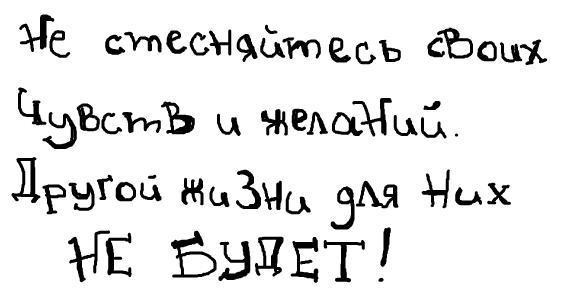 Не стесняйтесь своих
Чувств и желаний.
Другой жиЗни для них
НЕ БУДЕТ!